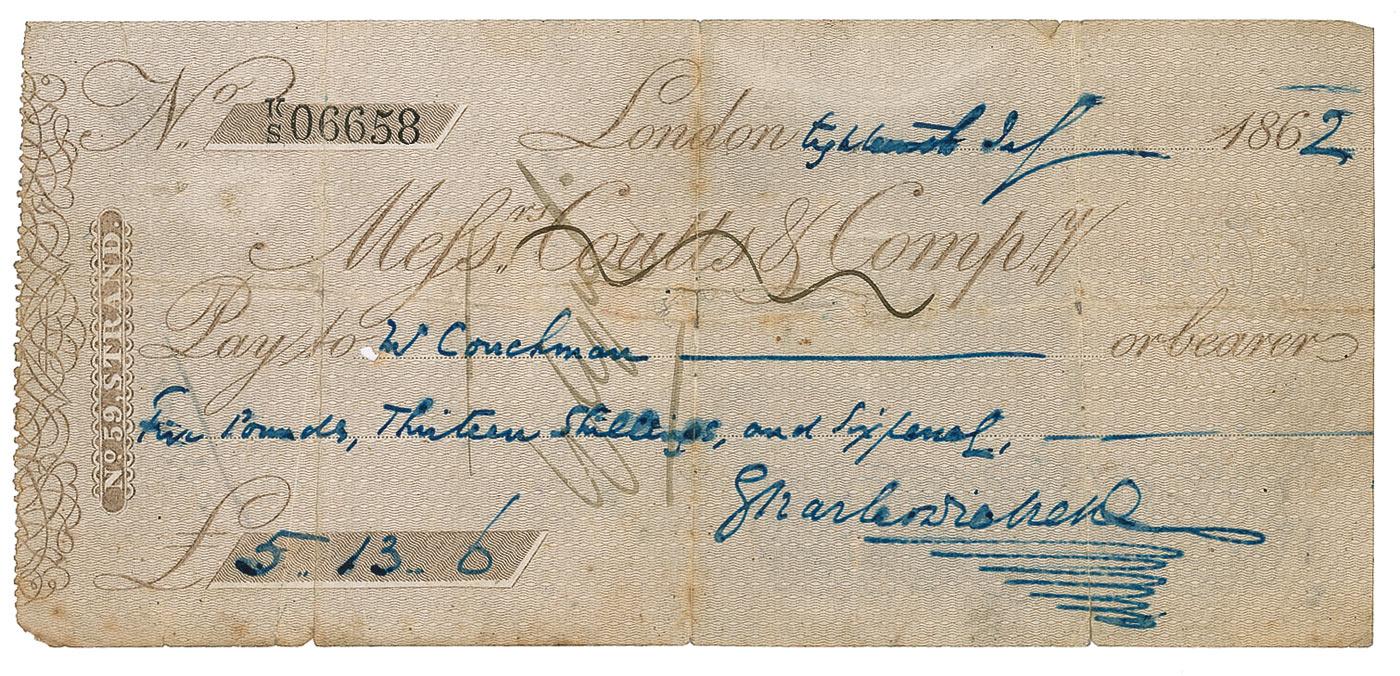 No. K/S 06658 London Eighteenth July 1862
Messrs. Coutts & Compy.
Pay to W Couchman or bearer
Five Pounds, Thirteen Shillings, and Sixpence,
Charles Dickens
£ 5.. 13.. 6
No. 59. STRAND.